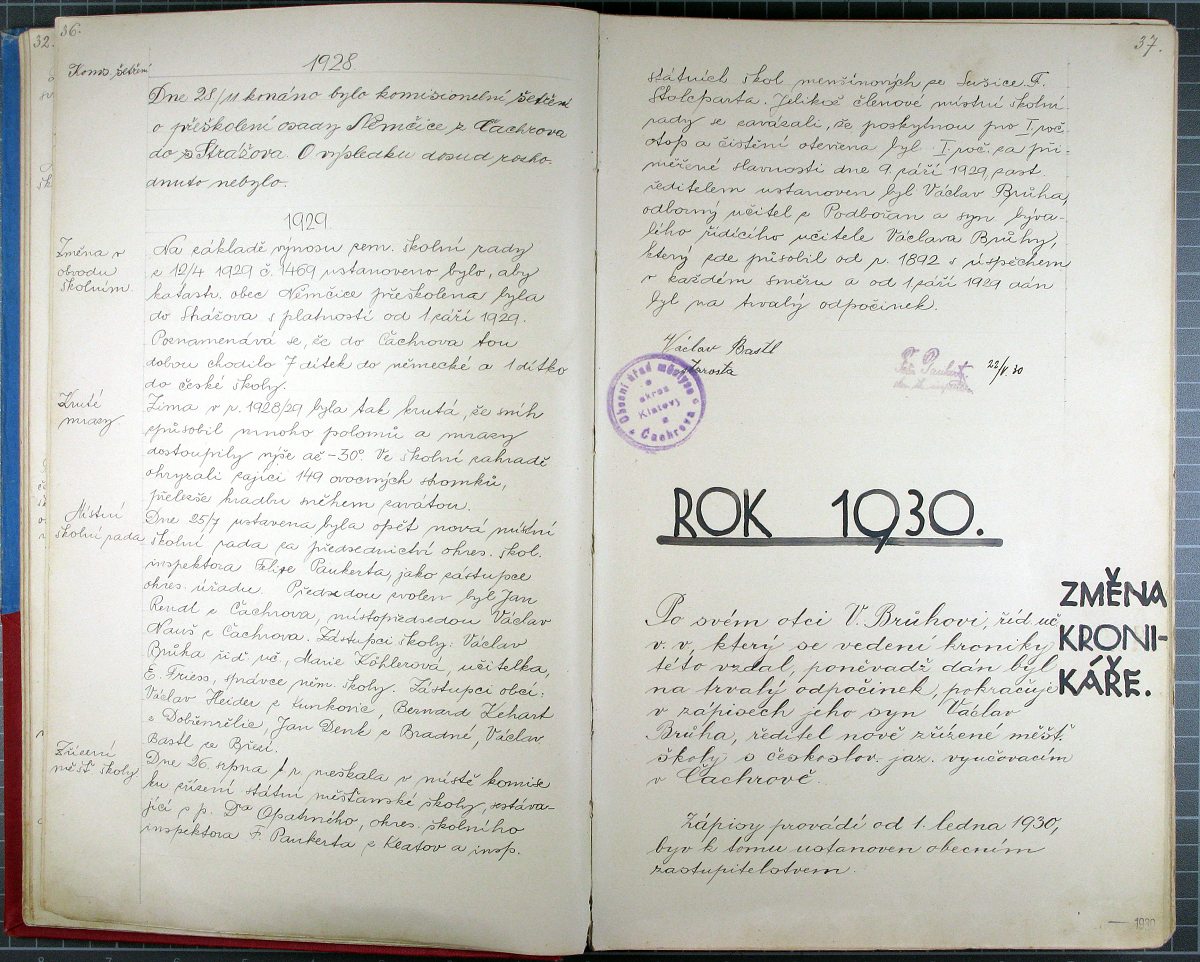 32.
36.
1928.
Komis. šetření
Dne 28/11 konáno bylo komisionelní šetření
o přeškolení osady Němčice z Čachrova
do Strážova. O výsledku dosud rozho-
dnuto nebylo.
1929.
Změna v
obvodu
školním.
Na základě výnosu zem. školní rady
z 12/4 1929 č. 1469 ustanoveno bylo, aby
katastr. obec Němčice přeškolena byla
do Strážova s platností od 1 září 1929.
Poznamenává se, že do Čachrova tou
dobou chodilo 7 dítek do německé a 1 dítko
do české školy.
Kruté
mrazy
Zima v r. 1928/29 byla tak krutá, že sníh
způsobil mnoho polomů a mrazy
dostoupily výše až -30°. Ve školní zahradě
ohryzali zajíci 149 ovocných stromků,
přelezše hradbu sněhem zavátou.
Místní
školní rada
Dne 25/7 ustavena byla opět nová místní
školní rada za předsednictví okres. škol.
inspektora Felixe Paukerta, jako zástupce
okres. úřadu. Předsedou zvolen byl Jan
Rendl z Čachrova, místopředsedou Václav
Nauš z Čachrova. Zástupci školy: Václav
Brůha říd. uč., Marie Köhlerova, učitelka,
E. Friess, správce něm. školy. Zástupci obcí:
Václav Heider z Kunkovic, Bernard Zehart
z Dobřemělic, Jan Denk z Bradné, Václav
Bastl ze Březí.
Zřízení
měšť. školy
Dne 26. srpna t. r. meškala v místě komise
ku zřízení státní měšťanské školy, sestáva-
jící z p. Dra Opatrného, okres. školního
inspektora F. Paukerta z Klatov a insp.
37.
státních škol menšinových ze Sušice F.
Stolcparta. Jelikož členové místní školní
rady se zavázali, že poskytnou pro I. roč.
otop a čistění otevřena byl I. roč. za při-
měřené slavnosti dne 9. září 1929, zast.
ředitelem ustanoven byl Václav Brůha,
odborný učitel z Podbořan a syn býva-
lého řídícího učitele Václava Brůhy,
který zde působil od r. 1892 s úspěchem
v každém směru a od 1 září 1929 dán
byl na trvalý odpočinek.
Václav Bastl
starosta
Obecní úřad městyse
okres
Klatovy
Čachrova
Paukert
22/V. 30
ROK 1930.
ZMĚNA
KRONI-
KÁŘE.
Po svém otci V. Brůhovi, říd. uč.
v. v., který se vedení kroniky
této vzdal, poněvadž dán byl
na trvalý odpočinek, pokračuje
v zápisech jeho syn Václav
Brůha, ředitel nově zřízené měšť.
školy s českoslov. jaz. vyučovacím
v Čachrově.
Zápisy provádí od 1. ledna 1930,
byv k tomu ustanoven obecním
zastupitelstvem.
1930